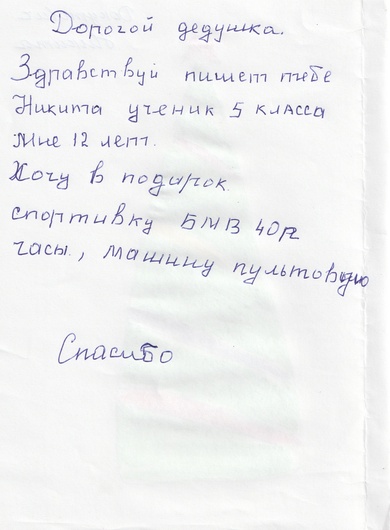 Дорогой дедушка.
Здравствуй пишет тебе
Никита ученик 5 класса
Мне 12 лет.
Хочу в подарок.
спортивку БМВ 40р
часы, машину пультовую
Спасибо